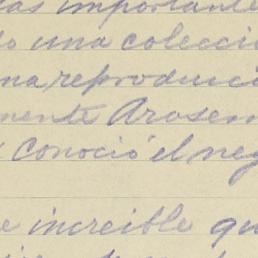 das importante
do una colecció
na reproducci
mente Arosem
conoció el neg
e increible qu